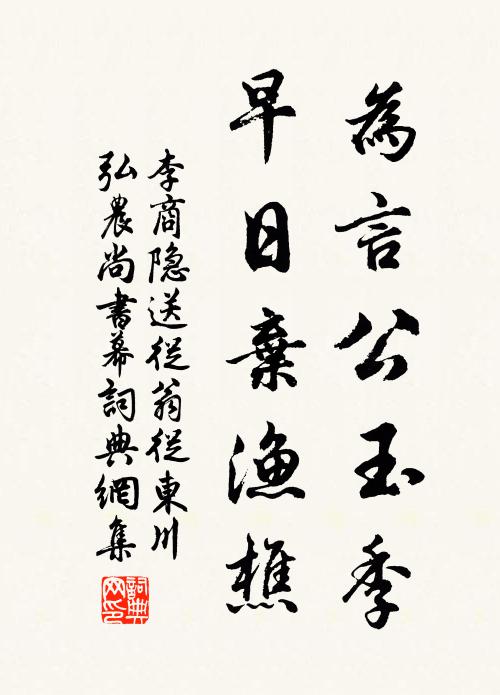 為言公玉季
早日棄漁樵
李商隐送從翁從東川
弘農尚書幕詞典網集
詞典网印